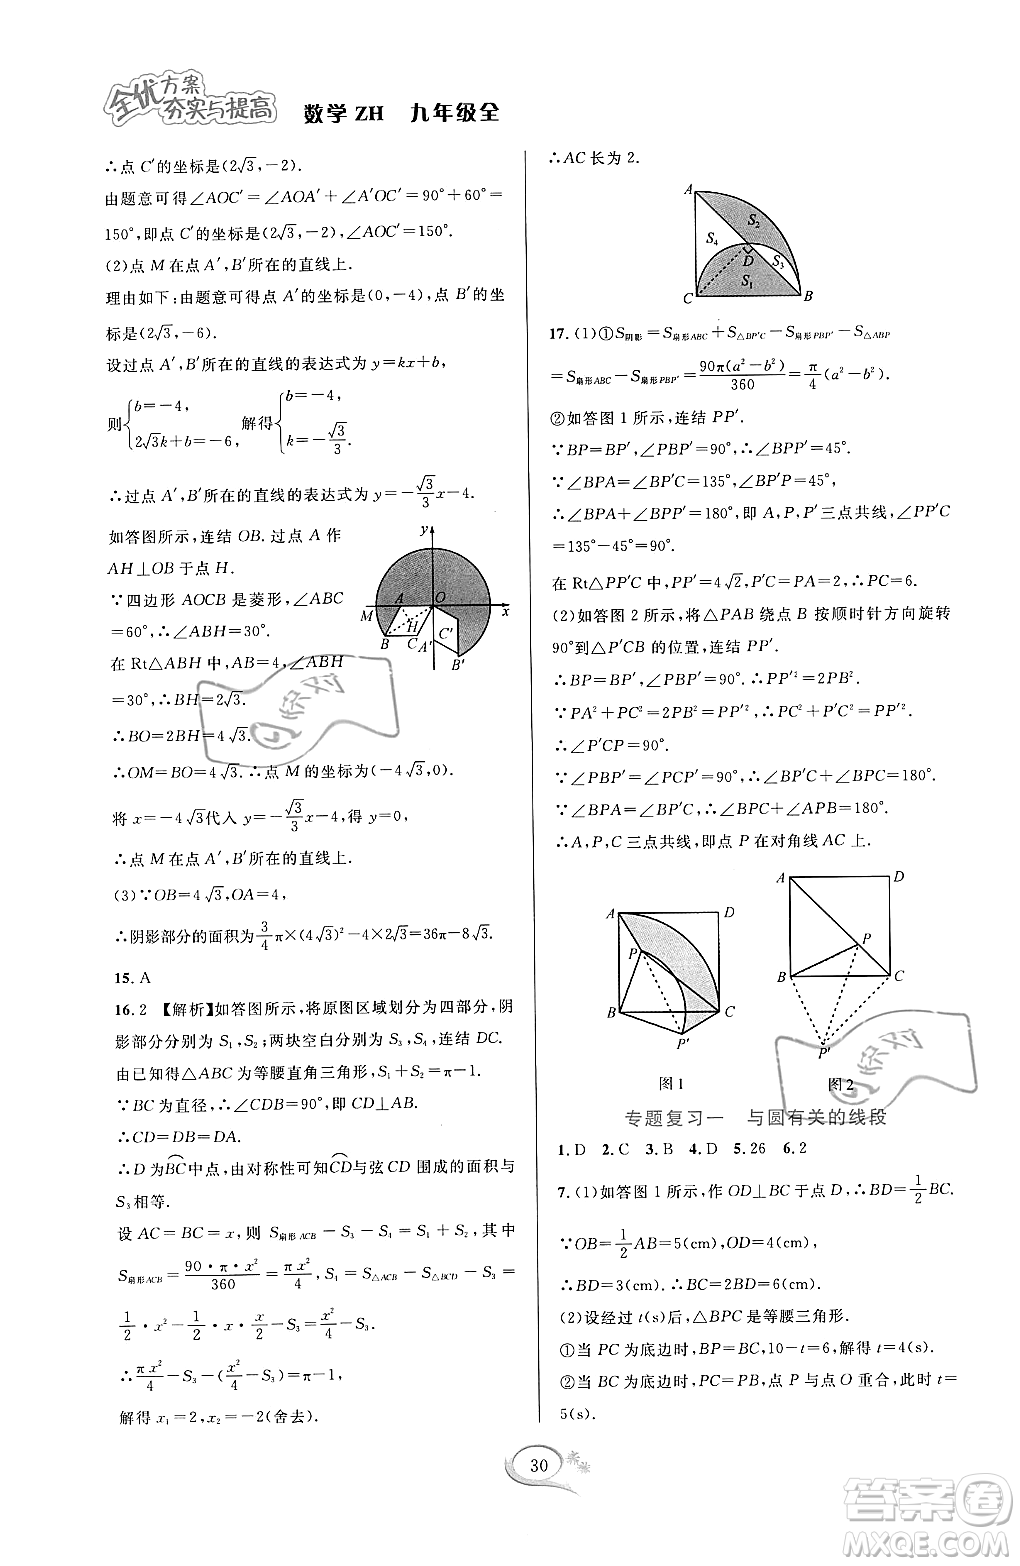 全优方案
夯实与提高
数学 ZH 九年级全
∴点 C′的坐标是(2√3,-2).
由题意可得∠AOC′=∠AOA′+∠A′OC′=90°+60°=
150°,即点 C′的坐标是(2√3,-2),∠AOC′=150°.
(2)点 M 在点 A′,B′所在的直线上.
理由如下:由题意可得点 A′的坐标是(0,-4),点 B′的坐
标是(2√3,-6).
设过点 A′,B′所在的直线的表达式为 y=kx+b,
则{b=-4, 2√3k+b=-6, 解得{b=-4, k=-√3/3.
∴过点 A′,B′所在的直线的表达式为 y=-√3/3x-4.
如答图所示,连结 OB.过点 A 作
AH⊥OB 于点 H.
∵四边形 AOCB 是菱形,∠ABC
=60°,∴∠ABH=30°.
在 Rt△ABH 中,AB=4,∠ABH
=30°,∴BH=2√3.
∴BO=2BH=4√3.
∴OM=BO=4√3.∴点 M 的坐标为(-4√3,0).
将 x=-4√3代入 y=-√3/3x-4,得 y=0,
∴点 M 在点 A′,B′所在的直线上.
(3)∵OB=4√3,OA=4,
∴阴影部分的面积为3/4π×(4√3)²-4×2√3=36π-8√3.
y
A O x
M H
B C C′
A′
B′
15. A
16. 2 【解析】如答图所示,将原图区域划分为四部分,阴
影部分分别为 S₁,S₂;两块空白分别为 S₃,S₄,连结 DC.
由已知可得△ABC 为等腰直角三角形,S₁-S₄=π-1.
∵BC 为直径,∴∠CDB=90°,即 CD⊥AB.
∴CD=DB=DA.
∴D 为BC中点,由对称性可知CD与弦 CD 围成的面积与
S₃相等.
设 AC=BC=x,则 S扇形ACB-S₃-S₄=S₁+S₂,其中
S扇形ACB=90·π·x²/360=πx²/4,S₄=S△ACB-S△BCD-S₃=
1/2·x²-1/2·x·x/2-S₃=x²/4-S₃.
∴πx²/4-S₃-(x²/4-S₃)=π-1.
解得 x₁=2,x₂=-2(舍去).
∴AC 长为 2.
A
S₂
S₄
D S₃
S₁
C B
17. (1)①S阴影=S扇形ABC+S△BP′C-S扇形PBP′-S△ABP
=S扇形ABC-S扇形PBP′=90π(a²-b²)/360=π/4(a²-b²).
②如答图 1 所示,连结 PP′.
∵BP=BP′,∠PBP′=90°,∴∠BPP′=45°.
∵∠BPA=∠BP′C=135°,∠BP′P=45°,
∴∠BPA+∠BPP′=180°,即 A,P,P′三点共线,∠PP′C
=135°-45°=90°.
在 Rt△PP′C 中,PP′=4√2,P′C=PA=2,∴PC=6.
(2)如答图 2 所示,将△PAB 绕点 B 按顺时针方向旋转
90°到△P′CB 的位置,连结 PP′.
∴BP=BP′,∠PBP′=90°,∴PP′²=2PB².
∵PA²+PC²=2PB²=PP′²,∴PC²+P′C²=PP′².
∴∠P′CP=90°.
∵∠PBP′=∠PCP′=90°,∴∠BPC+∠BP′C=180°.
∵∠BPA=∠BP′C,∴∠BPC+∠APB=180°.
∴A,P,C 三点共线,即点 P 在对角线 AC 上.
A D
P
B C
P′
图 1
A D
P
B C
P′
图 2
专题复习一 与圆有关的线段
1. D 2. C 3. B 4. D 5. 26 6. 2
7. (1)如答图 1 所示,作 OD⊥BC 于点 D,∴BD=1/2BC.
∵OB=1/2AB=5(cm),OD=4(cm),
∴BD=3(cm),∴BC=2BD=6(cm).
(2)设经过 t(s)后,△BPC 是等腰三角形.
①当 PC 为底边时,BP=BC,10-t=6,解得 t=4(s).
②当 BC 为底边时,PC=PB,点 P 与点 O 重合,此时 t=
5(s).
30
快对
快对
答案圈
MXQE.COM